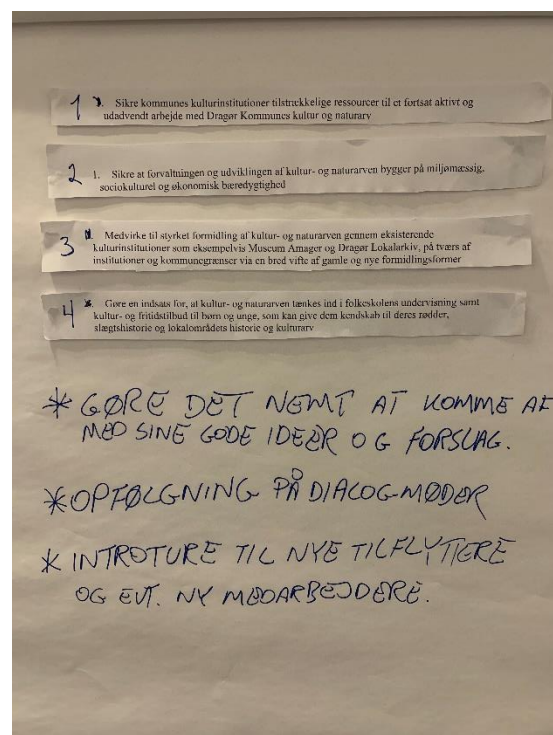 1 3. Sikre kommunes kulturinstitutioner tilstrækkelige ressourcer til et fortsat aktivt og
udadvendt arbejde med Dragør Kommunes kultur og naturarv
2 1. Sikre at forvaltningen og udviklingen af kultur- og naturarven bygger på miljømæssig,
sociokulturel og økonomisk bæredygtighed
3 Medvirke til styrket formidling af kultur- og naturarven gennem eksisterende
kulturinstitutioner som eksempelvis Museum Amager og Dragør Lokalarkiv, på tværs af
institutioner og kommunegrænser via en bred vifte af gamle og nye formidlingsformer
4 Gøre en indsats for, at kultur- og naturarven tænkes ind i folkeskolens undervisning samt
kultur- og fritidstilbud til børn og unge, som kan give dem kendskab til deres rødder,
slægtshistorie og lokalområdets historie og kulturarv
* GØRE DET NEMT AT KOMME AF
MED SINE GODE IDEER OG FORSLAG.
* OPFØLGNING PÅ DIALOG-MØDER
* INTROTURE TIL NYE TILFLYTTERE
OG EVT. NY MEDARBEJDERE.